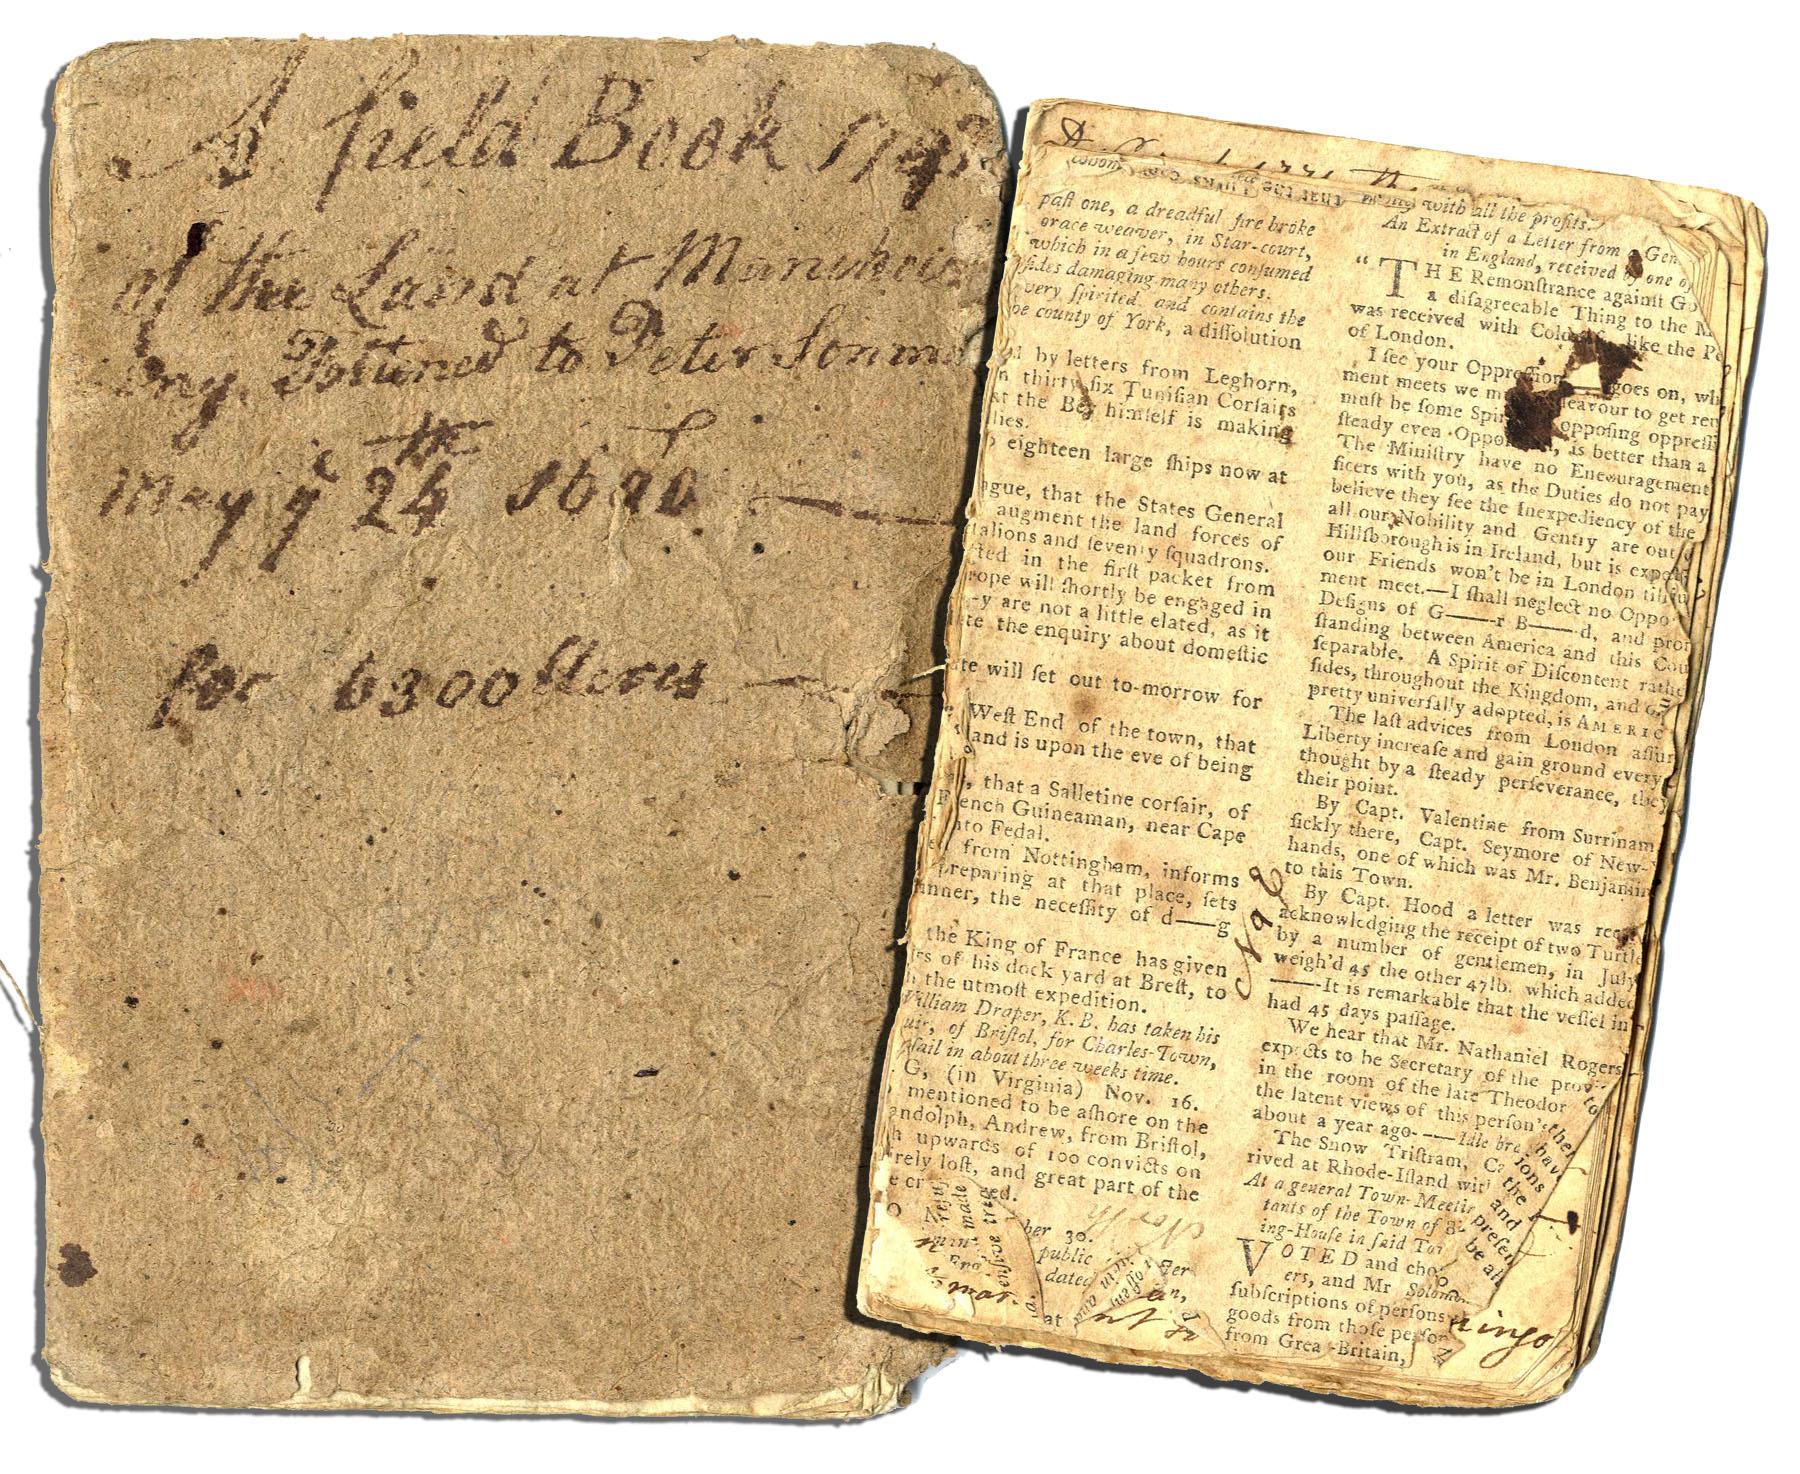 A field Book 174
of the Land at
ony. to Peter Sonm
May ye 24th 1690
for 6300 Acres
with all the profits.
past one, a dreadful fire broke
orace weaver, in Star-court,
which in a few hours consumed
sides damaging many others.
very spirited and contains the
county of York, a dissolution
by letters from Leghorn,
thirty six Tunisian Corsairs
the Bey himself is making
lies.
eighteen large ships now at
ague, that the States General
augment the land forces of
talions and seventy squadrons.
in the first packet from
rope will shortly be engaged in
y are not a little elated, as it
the enquiry about domestic
te will set out to-morrow for
West End of the town, that
land is upon the eve of being
, that a Salletine corsair, of
French Guineaman, near Cape
into Fedal.
from Nottingham, informs
preparing at that place, sets
anner, the necessity of d——g
the King of France has given
of his dock yard at Brest, to
the utmost expedition.
William Draper, K. B. has taken his
air, of Bristol, for Charles-Town,
sail in about three weeks time.
G, (in Virginia) Nov. 16.
mentioned to be ashore on the
andolph, Andrew, from Bristol,
h upwards of 100 convicts on
rely lost, and great part of the
ed.
ber 30.
public
dated
at
An Extract of a Letter from a Gen
in England, received by one of
"THE Remonstrance against Go
a disagreeable Thing to the M
was received with like the Pe
of London.
I see your Oppression goes on, wh
ment meets we m deavour to get ren
must be some Spir opposing oppressi
steady even Oppo is better than a
The Ministry have no Encouragement
ficers with you, as the Duties do not pay
believe they see the Inexpediency of the
all our Nobility and Gentry are out
Hillsborough is in Ireland, but is expe
our Friends won't be in London till
ment meet.—I shall neglect no Oppo
Designs of G——r B——d, and pro
standing between America and this Cou
separable. A Spirit of Discontent rathe
sides, throughout the Kingdom, and
pretty universally adopted, is AMERIC
The last advices from London assur
Liberty increase and gain ground every
thought by a steady perseverance, they
their point.
By Capt. Valentine from Surrinam
sickly there, Capt. Seymore of New-
hands, one of which was Mr. Benjamin
to this Town.
By Capt. Hood a letter was rece
acknowledging the receipt of two Turtle
by a number of gentlemen, in July
weigh'd 45 the other 47lb. which added
——It is remarkable that the vessel in
had 45 days passage.
We hear that Mr. Nathaniel Rogers
expects to be Secretary of the prov
in the room of the late Theodor
the latent views of this person's
about a year ago——Idle
The Snow Tristram, Ca
rived at Rhode-Island wit
At a general Town-Meeti
tants of the Town of
ing-House in said To
VOTED and cho
ers, and Mr Solomon
subscriptions of persons
goods from those person
from Grea -Britain,